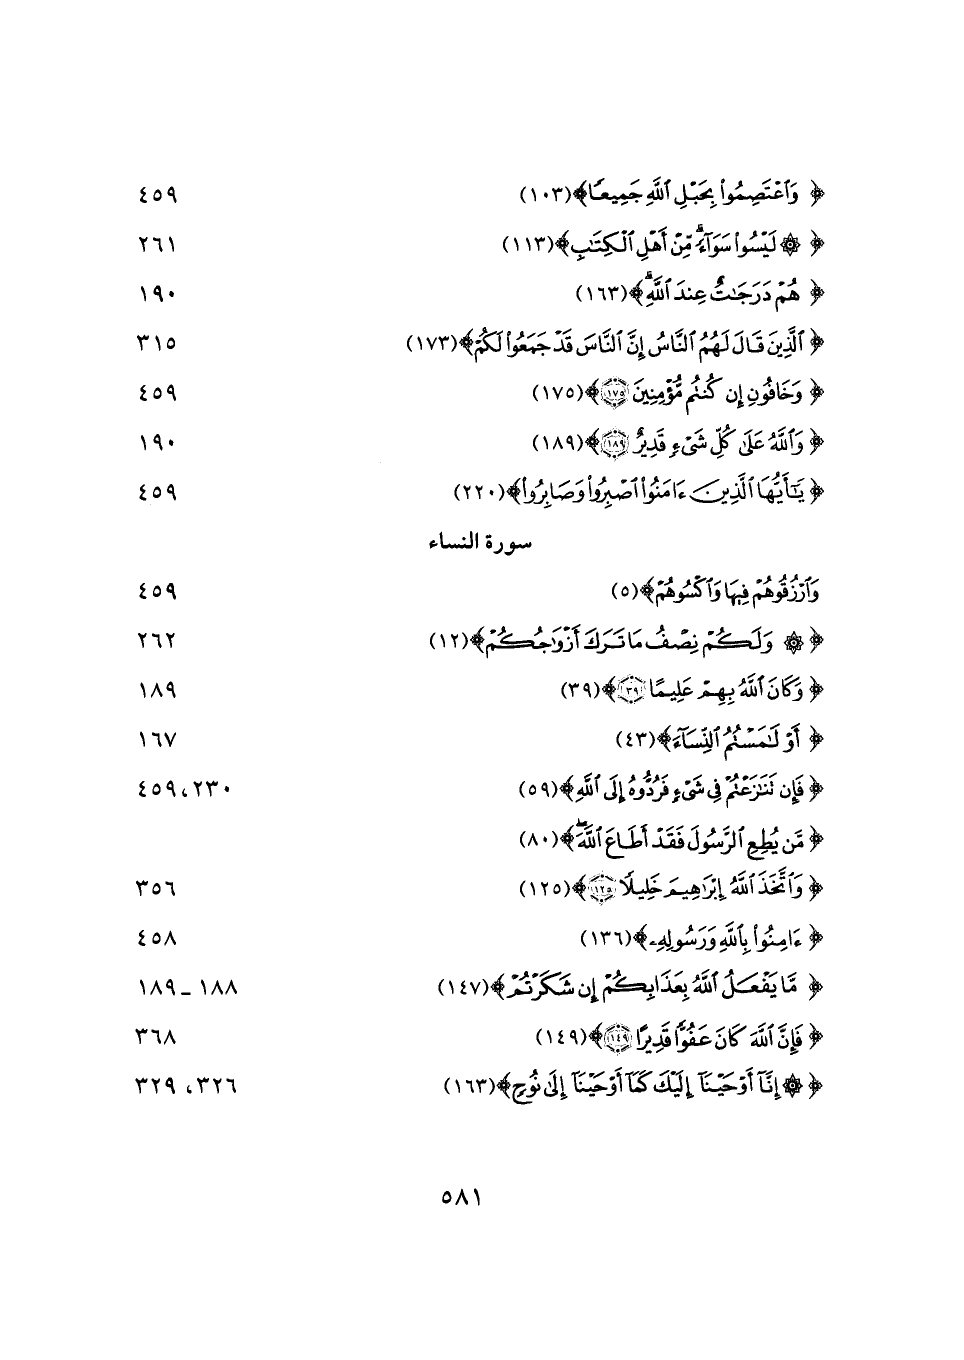 ﴿ وَٱعْتَصِمُوا۟ بِحَبْلِ ٱللَّهِ جَمِيعًا﴾(١٠٣) ٤٥٩
﴿ ۞ لَيْسُوا۟ سَوَآءً ۗ مِّنْ أَهْلِ ٱلْكِتَـٰبِ﴾(١١٣) ٢٦١
﴿ هُمْ دَرَجَـٰتٌ عِندَ ٱللَّهِ ۗ﴾(١٦٣) ١٩٠
﴿ ٱلَّذِينَ قَالَ لَهُمُ ٱلنَّاسُ إِنَّ ٱلنَّاسَ قَدْ جَمَعُوا۟ لَكُمْ﴾(١٧٣) ٣١٥
﴿ وَخَافُونِ إِن كُنتُم مُّؤْمِنِينَ ١٧٥﴾(١٧٥) ٤٥٩
﴿ وَٱللَّهُ عَلَىٰ كُلِّ شَىْءٍ قَدِيرٌ ١٨٩﴾(١٨٩) ١٩٠
﴿ يَـٰٓأَيُّهَا ٱلَّذِينَ ءَامَنُوا۟ ٱصْبِرُوا۟ وَصَابِرُوا۟﴾(٢٢٠) ٤٥٩
سورة النساء
وَٱرْزُقُوهُمْ فِيهَا وَٱكْسُوهُمْ﴾(٥) ٤٥٩
﴿ ۞ وَلَكُمْ نِصْفُ مَا تَرَكَ أَزْوَٰجُكُمْ﴾(١٢) ٢٦٢
﴿ وَكَانَ ٱللَّهُ بِهِمْ عَلِيمًا ٣٩﴾(٣٩) ١٨٩
﴿ أَوْ لَـٰمَسْتُمُ ٱلنِّسَآءَ﴾(٤٣) ١٦٧
﴿ فَإِن تَنَـٰزَعْتُمْ فِى شَىْءٍ فَرُدُّوهُ إِلَى ٱللَّهِ﴾(٥٩) ٢٣٠، ٤٥٩
﴿ مَّن يُطِعِ ٱلرَّسُولَ فَقَدْ أَطَاعَ ٱللَّهَ ۖ﴾(٨٠)
﴿ وَٱتَّخَذَ ٱللَّهُ إِبْرَٰهِيمَ خَلِيلًا ١٢٥﴾(١٢٥) ٣٥٦
﴿ ءَامِنُوا۟ بِٱللَّهِ وَرَسُولِهِۦ﴾(١٣٦) ٤٥٨
﴿ مَّا يَفْعَلُ ٱللَّهُ بِعَذَابِكُمْ إِن شَكَرْتُمْ﴾(١٤٧) ١٨٨ ـ ١٨٩
﴿ فَإِنَّ ٱللَّهَ كَانَ عَفُوًّا قَدِيرًا ١٤٩﴾(١٤٩) ٣٦٨
﴿ ۞ إِنَّآ أَوْحَيْنَآ إِلَيْكَ كَمَآ أَوْحَيْنَآ إِلَىٰ نُوحٍ﴾(١٦٣) ٣٢٦، ٣٢٩
٥٨١